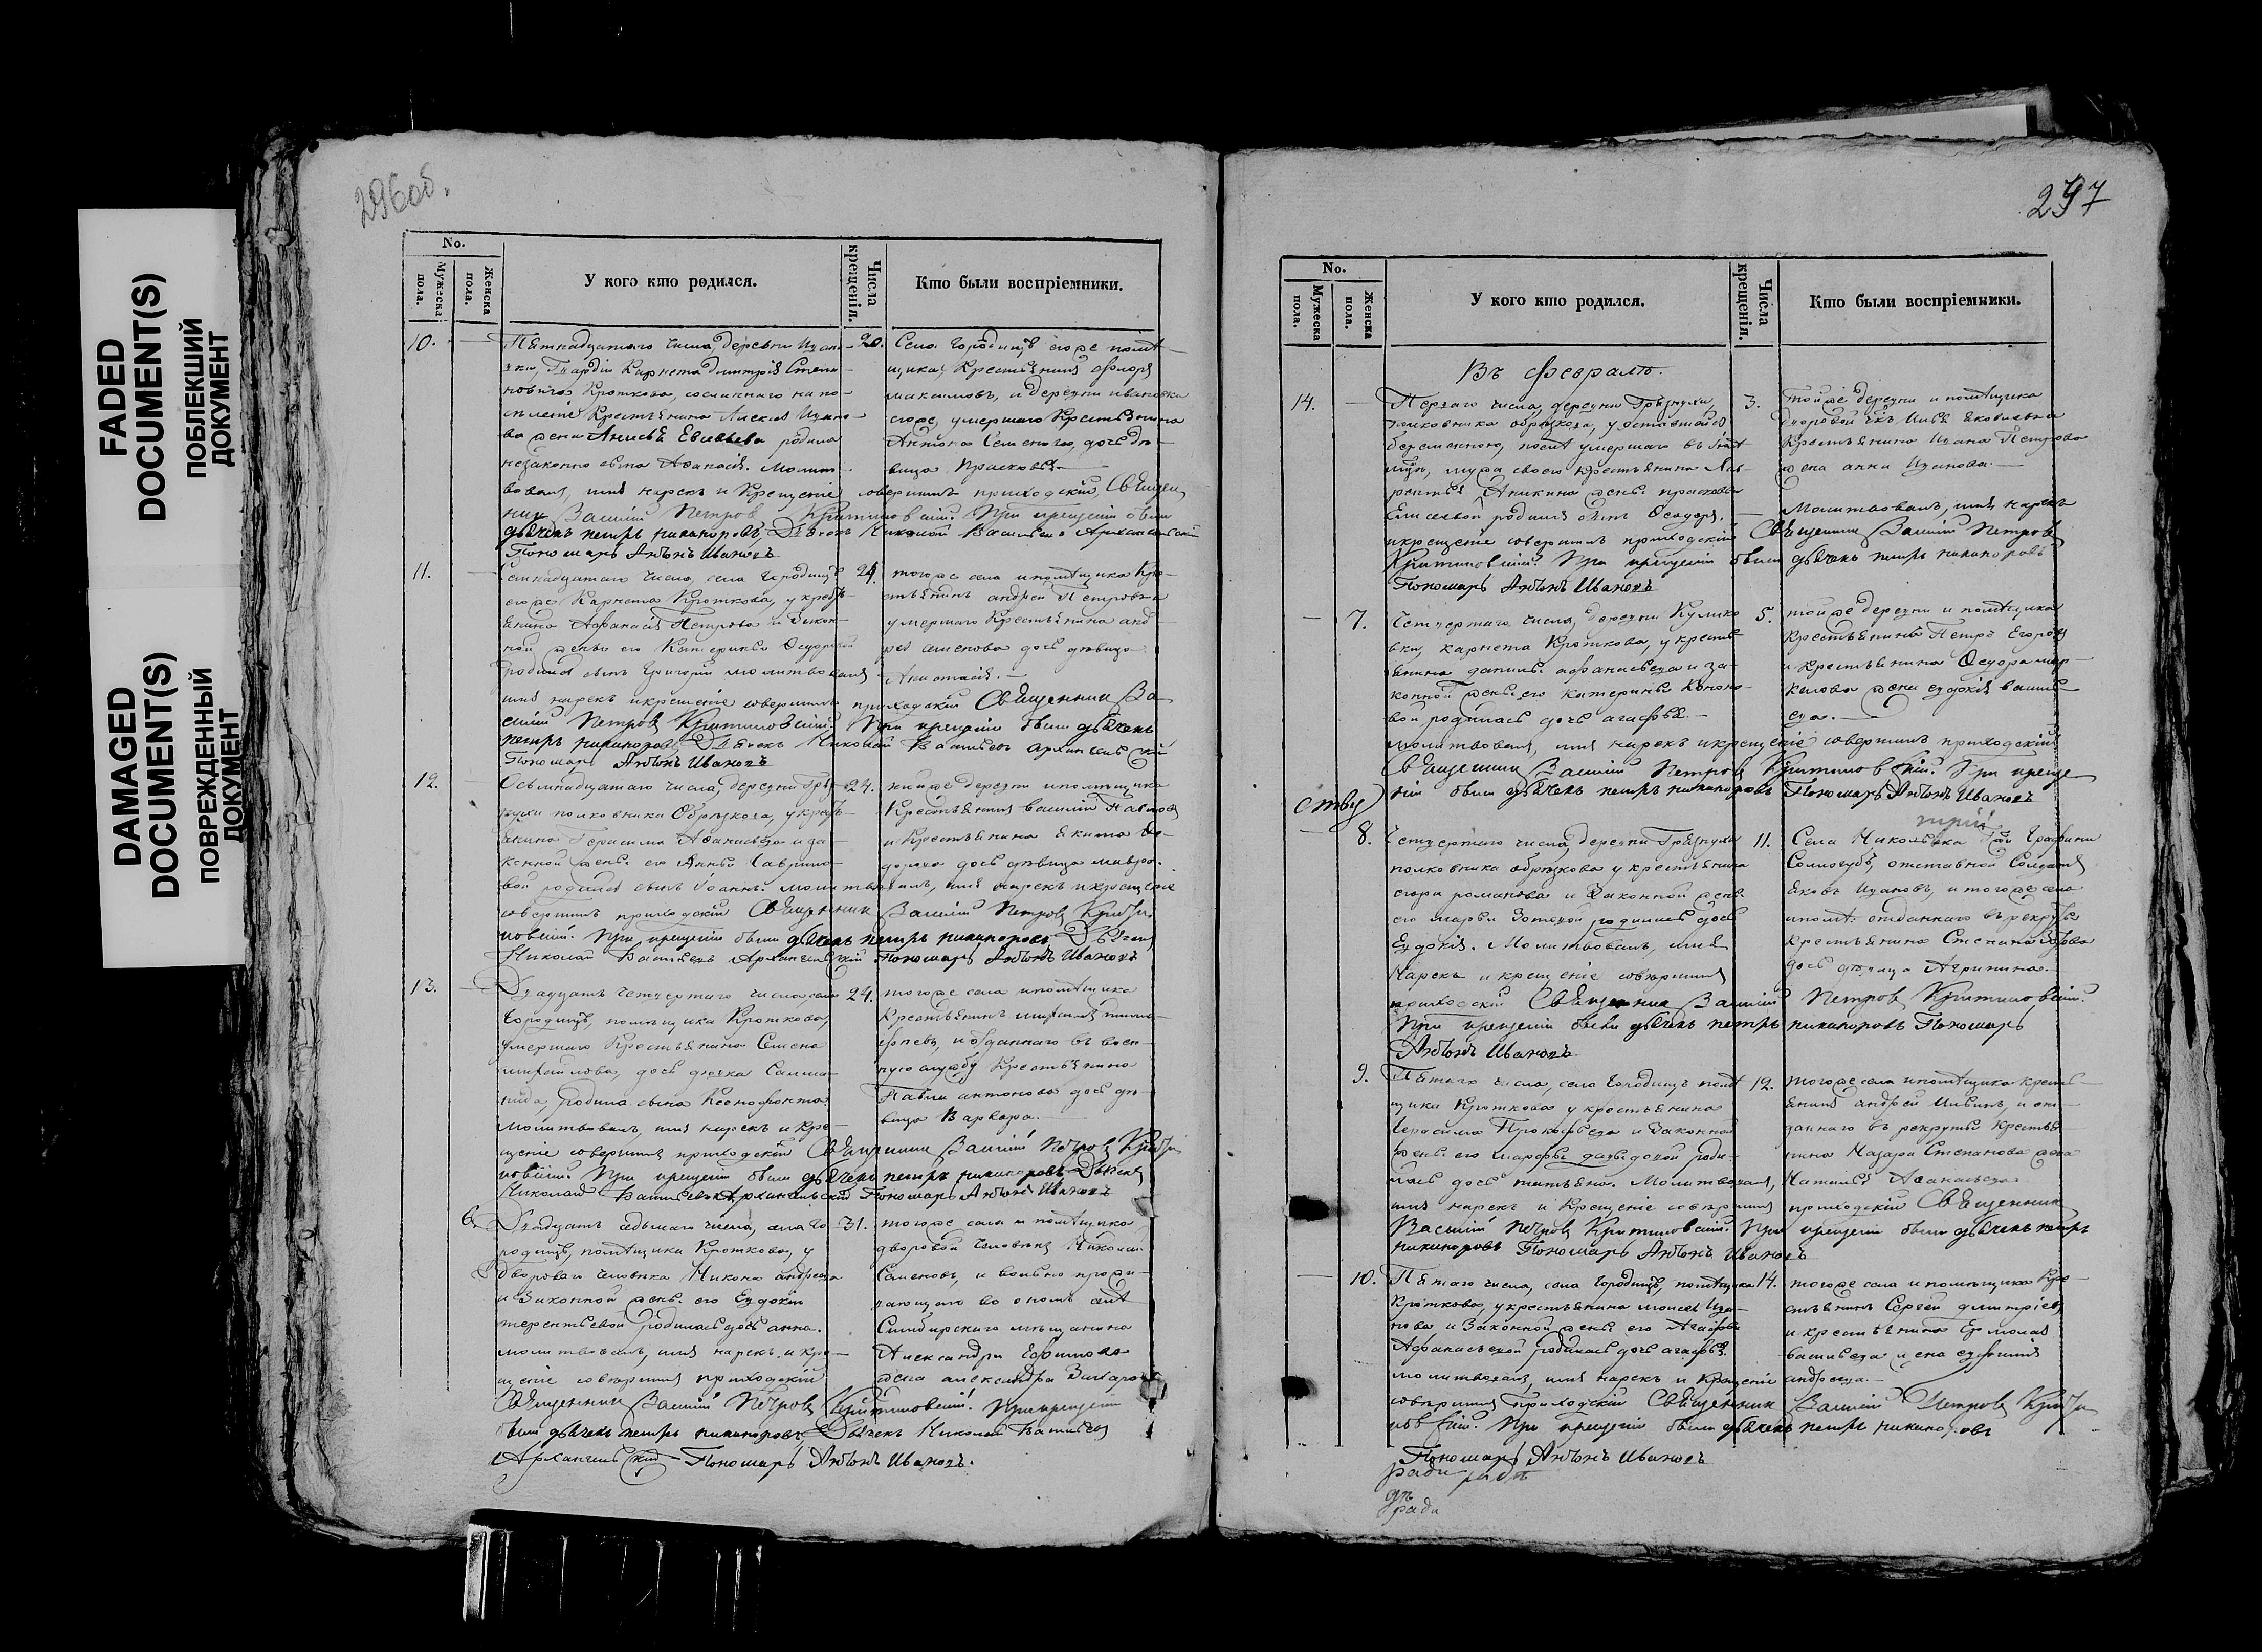 FADED
DOCUMENT(S)
ПОБЛЕКШИЙ
ДОКУМЕНТ
DAMAGED
DOCUMENT(S)
ПОВРЕЖДЕННЫЙ
ДОКУМЕНТ
296об.
No.
Мужеска пола.
Женска пола.
У кого кто родился.
Числа крещенія.
Кто были воспріемники.
10.
Пятнадцатаго числа, деревни Ивано-
вки, Гвардіи Карнета Димитрія Степа-
новича Кроткова, сосланнаго на по-
селеніе Крестьянина Алексея Ивано-
ва жена Анисья Евсевьева родила
незаконно сына Афанасія. Молит-
вовалъ, имя нарекъ и Крещеніе совершилъ приходскій Священ
никъ Василій Петровъ При крещеніи были
дьячекъ петръ никаноровъ, Дьячекъ Николай Васильевъ Архангельскій
Пономарь Антонъ Ивановъ
20.
Села Городищъ егоже помѣ-
щика, Крестьянинъ Флоръ
Максимовъ, и деревни Ивановки
егоже, умершаго Крестьянина
Антона Семенова, дочь дѣ-
вица Прасковья.
11.
Семнадцатаго числа, села Городищъ
егоже Карнета Кроткова, у кресть-
янина Афанасія Петрова и Закон-
ной жены его Катерины Федоровой
родился сынъ Григорій молитвовалъ
имя нарекъ и крещеніе совершилъ приходскій Священникъ Ва
силій Петровъ При крещеніи были дьячекъ
петръ никаноровъ, Дьячекъ Николай Васильевъ Архангельскій
Пономарь Антонъ Ивановъ
24.
тогоже села и помѣщика Кре-
стьянинъ андрей Петровъ и
умершаго Крестьянина анд-
рея семенова дочь дѣвица
Анастасія.
12.
Осьмнадцатаго числа, деревни Гряз-
нухи полковника Обрѣзкова, у кресть-
янина Герасима Афанасьева и за-
конной жены его Анны Гаврило-
вой родился сынъ Іоаннъ. молитвовалъ, имя нарекъ и крещеніе
совершилъ приходскій Священникъ Василій Петровъ
При крещеніи были дьячекъ петръ никаноровъ Дьячекъ
Николай Васильевъ Архангельскій Пономарь Антонъ Ивановъ
24.
тойже деревни и помѣщика
Крестьянинъ Василій Павловъ
и Крестьянина Якима Фе-
дорова дочь дѣвица мавра.
13.
Двадцать четвертаго числа, села
Городищъ, помѣщика Кроткова,
умершаго Крестьянина Семена
михайлова, дочь дѣвка Салма-
нида, родила сына Ксенофонта.
Молитвовалъ, имя нарекъ и кре-
щеніе совершилъ приходскій Священникъ Василій Петровъ
При крещеніи были дьячекъ петръ никаноровъ Дьячекъ
Николай Васильевъ Архангельскій Пономарь Антонъ Ивановъ
24.
тогоже села и помѣщика
Крестьянинъ михаилъ тимо-
феевъ, и отданнаго въ воен-
ную службу Крестьянина
Павла антонова дочь дѣ-
вица Варвара.
6.
Двадцать седьмаго числа, села Го-
родищъ, помѣщика Кроткова, у
Двороваго человѣка Никона андреева
и Законной жены его Евдокіи
терентьевой родилась дочь анна.
молитвовалъ, имя нарекъ и кре-
щеніе совершилъ приходскій
Священникъ Василій Петровъ При крещеніи
были дьячекъ петръ никаноровъ, Дьячекъ Николай Васильевъ
Архангельскій Пономарь Антонъ Ивановъ.
31.
тогоже села и помѣщика
дворовой человѣкъ Николай
Семеновъ, и вольно прожи-
вающаго во ономъ селѣ
Симбирскаго мѣщанина
Александра Ефимова
жена александра
297
No.
Мужеска пола.
Женска пола.
У кого кто родился.
Числа крещенія.
Кто были воспріемники.
Въ Февралѣ.
14.
Перваго числа, деревни Грязнухи,
полковника обрѣзкова, у оставшейся
беременною, послѣ умершаго
мужа своего крестьянина Лав-
рентья Аникина жены прасковьи
Елисеевой родился сынъ Феодоръ.
и крещеніе совершилъ приходскій Священникъ Василій Петровъ
При крещеніи были дьячекъ петръ никаноровъ
Пономарь Антонъ Ивановъ
3.
тойже деревни и помѣщика
дворовой Яковлевъ
Крестьянина Ивана Петрова
жена анна Иванова.
Молитвовалъ, имя нарекъ
7.
Четвертаго числа, деревни Кулико-
вки, карнета Кроткова, у кресть-
янина данилы афанасьева и за-
конной жены его катерины
вой родилась дочь агафья.
молитвовалъ, имя нарекъ и крещеніе совершилъ приходскій
Священникъ Василій Петровъ При креще
ніи были дьячекъ петръ никаноровъ Пономарь Антонъ Ивановъ
5.
тойже деревни и помѣщика
Крестьянинъ Петръ Егоровъ
и крестьянина Федора мар-
келова жена евдокія василь-
ева.
ству
8.
Четвертаго числа, деревни Грязнухи
полковника обрѣзкова у крестьянина
егора романова и Законной жены
его марьи Зотовой родилась дочь
Евдокія. Молитвовалъ, имя
Нарекъ и крещеніе совершилъ
приходскій Священникъ Василій Петровъ
При крещеніи были дьячекъ петръ никаноровъ Пономарь
Антонъ Ивановъ
11.
Села Никольска Графини
Сологубъ, отставной Солдатъ
Яковъ Ивановъ, и тогоже села
и помѣ. отданнаго въ рекруты
крестьянина Степана
дочь дѣвица Агрипина.
9.
Пятаго числа, села Городищъ помѣ-
щика Кроткова у крестьянина
Герасима Прокофьева и Законной
жены его Марфы давыдовой роди-
лась дочь татьяна. Молитвовалъ,
имя нарекъ и Крещеніе совершилъ приходскій Священникъ
Василій Петровъ При крещеніи были дьячекъ петръ
никаноровъ Пономарь Антонъ Ивановъ
12.
тогоже села и помѣщика кресть-
янинъ андрей Ильинъ, и от-
даннаго въ рекруты Крестья-
нина Назара Степанова жена
Наталья Афанасьева
10.
Пятаго числа, села Городищъ, помѣщика
Кроткова, у крестьянина моисея Ива-
нова и Законной жены его Агафьи
Афанасьевой родилась дочь агафья.
молитвовалъ, имя нарекъ и Крещеніе
совершилъ Приходскій Священникъ Василій Петровъ
При крещеніи были дьячекъ петръ никаноровъ
Пономарь Антонъ Ивановъ
14.
тогоже села и помѣщика Кре-
стьянинъ Сергей дмитріевъ
и крестьянина Ермолая
васильева жена
андреева.
ради
ради